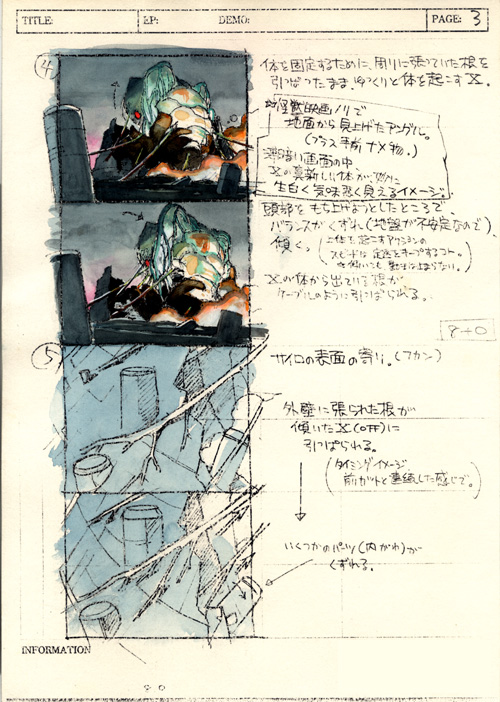 TITLE: EP: DEMO: PAGE: 3
④
体を固定するために、周りに張っていた根を
引っぱったまま、ゆっくりと体を起こすX。
怪獣映画ノリで
地面から見上げたアングル。
(プラス手前ナメ物。)
薄暗い画面の中
Xの真新しい体が
生白く気味悪く見えるイメージ。
頭部をもち上げようとしたところで、
バランスがくずれ(地盤が不安定なので)
傾く。
上体を起こすアクションの
スピードは
Xの体から出ている根が
ケーブルのように引っぱられる。
8+0
⑤
サイロの表面の寄り。(フカン)
外壁に張られた根が
傾いたX(OFF)に
引っぱられる。
(タイミングイメージ
前カットと連続した感じで。)
いくつかのパーツ(内がわ)が
くずれる。
INFORMATION